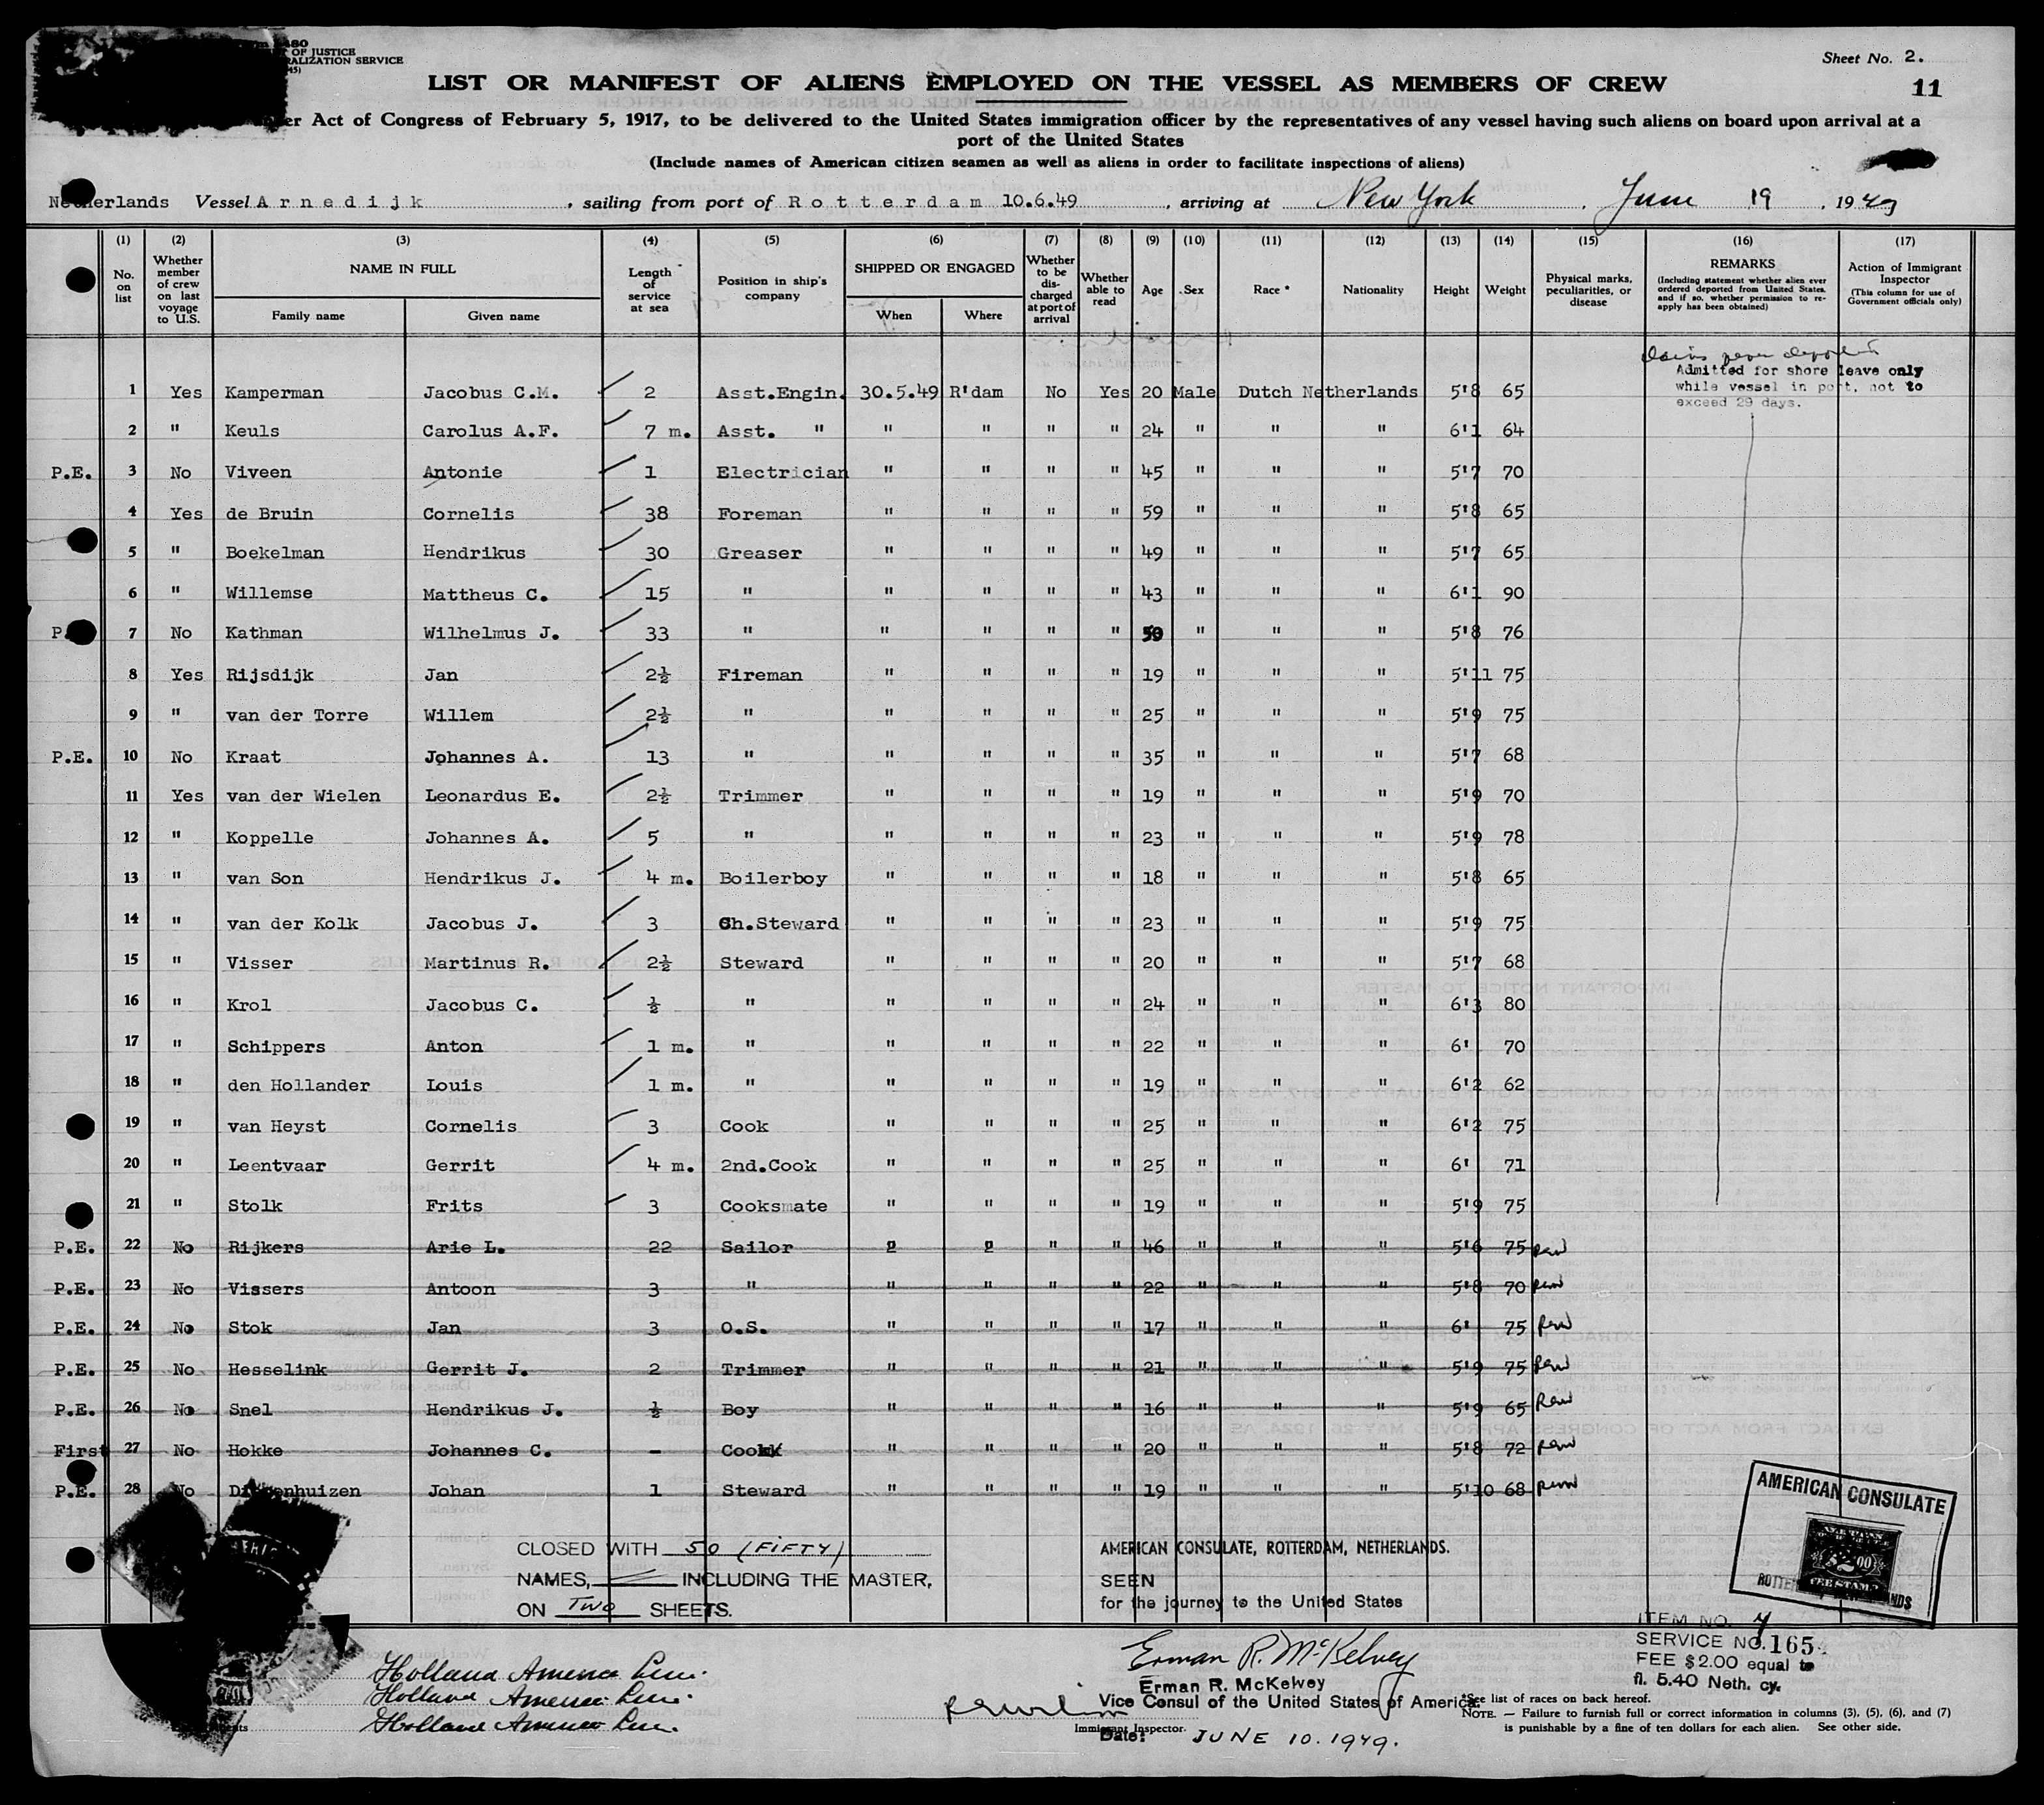 480
OF JUSTICE
RALIZATION SERVICE
45)
Sheet No. 2.
LIST OR MANIFEST OF ALIENS EMPLOYED ON THE VESSEL AS MEMBERS OF CREW
11
er Act of Congress of February 5, 1917, to be delivered to the United States immigration officer by the representatives of any vessel having such aliens on board upon arrival at a
port of the United States
(Include names of American citizen seamen as well as aliens in order to facilitate inspections of aliens)
Netherlands Vessel Arnedijk, sailing from port of Rotterdam 10.6.49, arriving at New York, June 19, 1949
(1) (2) (3) (4) (5) (6) (7) (8) (9) (10) (11) (12) (13) (14) (15) (16) (17)
No. on list
Whether member of crew on last voyage to U.S.
NAME IN FULL
Family name
Given name
Length of service at sea
Position in ship's company
SHIPPED OR ENGAGED
When
Where
Whether to be discharged at port of arrival
Whether able to read
Age
Sex
Race *
Nationality
Height
Weight
Physical marks, peculiarities, or disease
REMARKS
(Including statement whether alien ever ordered deported from United States, and if so, whether permission to re-apply has been obtained)
Action of Immigrant Inspector
(This column for use of Government officials only)
Admitted for shore leave only
while vessel in port, not to
exceed 29 days.
1 Yes Kamperman Jacobus C.M. 2 Asst.Engin. 30.5.49 R'dam No Yes 20 Male Dutch Netherlands 5'8 65
2 " Keuls Carolus A.F. 7 m. Asst. " " " " " 24 " " " 6'1 64
P.E. 3 No Viveen Antonie 1 Electrician " " " " 45 " " " 5'7 70
4 Yes de Bruin Cornelis 38 Foreman " " " " 59 " " " 5'8 65
5 " Boekelman Hendrikus 30 Greaser " " " " 49 " " " 5'7 65
6 " Willemse Mattheus C. 15 " " " " " 43 " " " 6'1 90
P. 7 No Kathman Wilhelmus J. 33 " " " " " 50 " " " 5'8 76
8 Yes Rijsdijk Jan 2½ Fireman " " " " 19 " " " 5'11 75
9 " van der Torre Willem 2½ " " " " " 25 " " " 5'9 75
P.E. 10 No Kraat Johannes A. 13 " " " " " 35 " " " 5'7 68
11 Yes van der Wielen Leonardus E. 2½ Trimmer " " " " 19 " " " 5'9 70
12 " Koppelle Johannes A. 5 " " " " " 23 " " " 5'9 78
13 " van Son Hendrikus J. 4 m. Boilerboy " " " " 18 " " " 5'8 65
14 " van der Kolk Jacobus J. 3 Ch.Steward " " " " 23 " " " 5'9 75
15 " Visser Martinus R. 2½ Steward " " " " 20 " " " 5'7 68
16 " Krol Jacobus C. ½ " " " " " 24 " " " 6'3 80
17 " Schippers Anton 1 m. " " " " " 22 " " " 6' 70
18 " den Hollander Louis 1 m. " " " " " 19 " " " 6'2 62
19 " van Heyst Cornelis 3 Cook " " " " 25 " " " 6'2 75
20 " Leentvaar Gerrit 4 m. 2nd.Cook " " " " 25 " " " 6' 71
21 " Stolk Frits 3 Cooksmate " " " " 19 " " " 5'9 75
P.E. 22 No Rijkers Arie L. 22 Sailor " " " " 46 " " " 5'6 75
P.E. 23 No Vissers Antoon 3 " " " " " 22 " " " 5'8 70
P.E. 24 No Stok Jan 3 O.S. " " " " 17 " " " 6' 75
P.E. 25 No Hesselink Gerrit J. 2 Trimmer " " " " 21 " " " 5'9 75
P.E. 26 No Snel Hendrikus J. ½ Boy " " " " 16 " " " 5'9 65
First 27 No Hokke Johannes C. - Cook " " " " 20 " " " 5'8 72
P.E. 28 No Johan 1 Steward " " " " 19 " " " 5'10 68
CLOSED WITH 50 (FIFTY)
NAMES, INCLUDING THE MASTER,
ON TWO SHEETS.
AMERICAN CONSULATE, ROTTERDAM, NETHERLANDS.
SEEN
for the journey to the United States
AMERICAN CONSULATE
$2.00
FEE STAMP
Erman R. McKelvey
Erman R. McKelvey
Vice Consul of the United States of America.
Immigrant Inspector.
Date: JUNE 10. 1949.
Holland America Line.
Holland America Line.
Holland America Line.
ITEM NO. 7
SERVICE NO. 165
FEE $2.00 equal to
fl. 5.40 Neth. cy.
*See list of races on back hereof.
NOTE. — Failure to furnish full or correct information in columns (3), (5), (6), and (7)
is punishable by a fine of ten dollars for each alien. See other side.